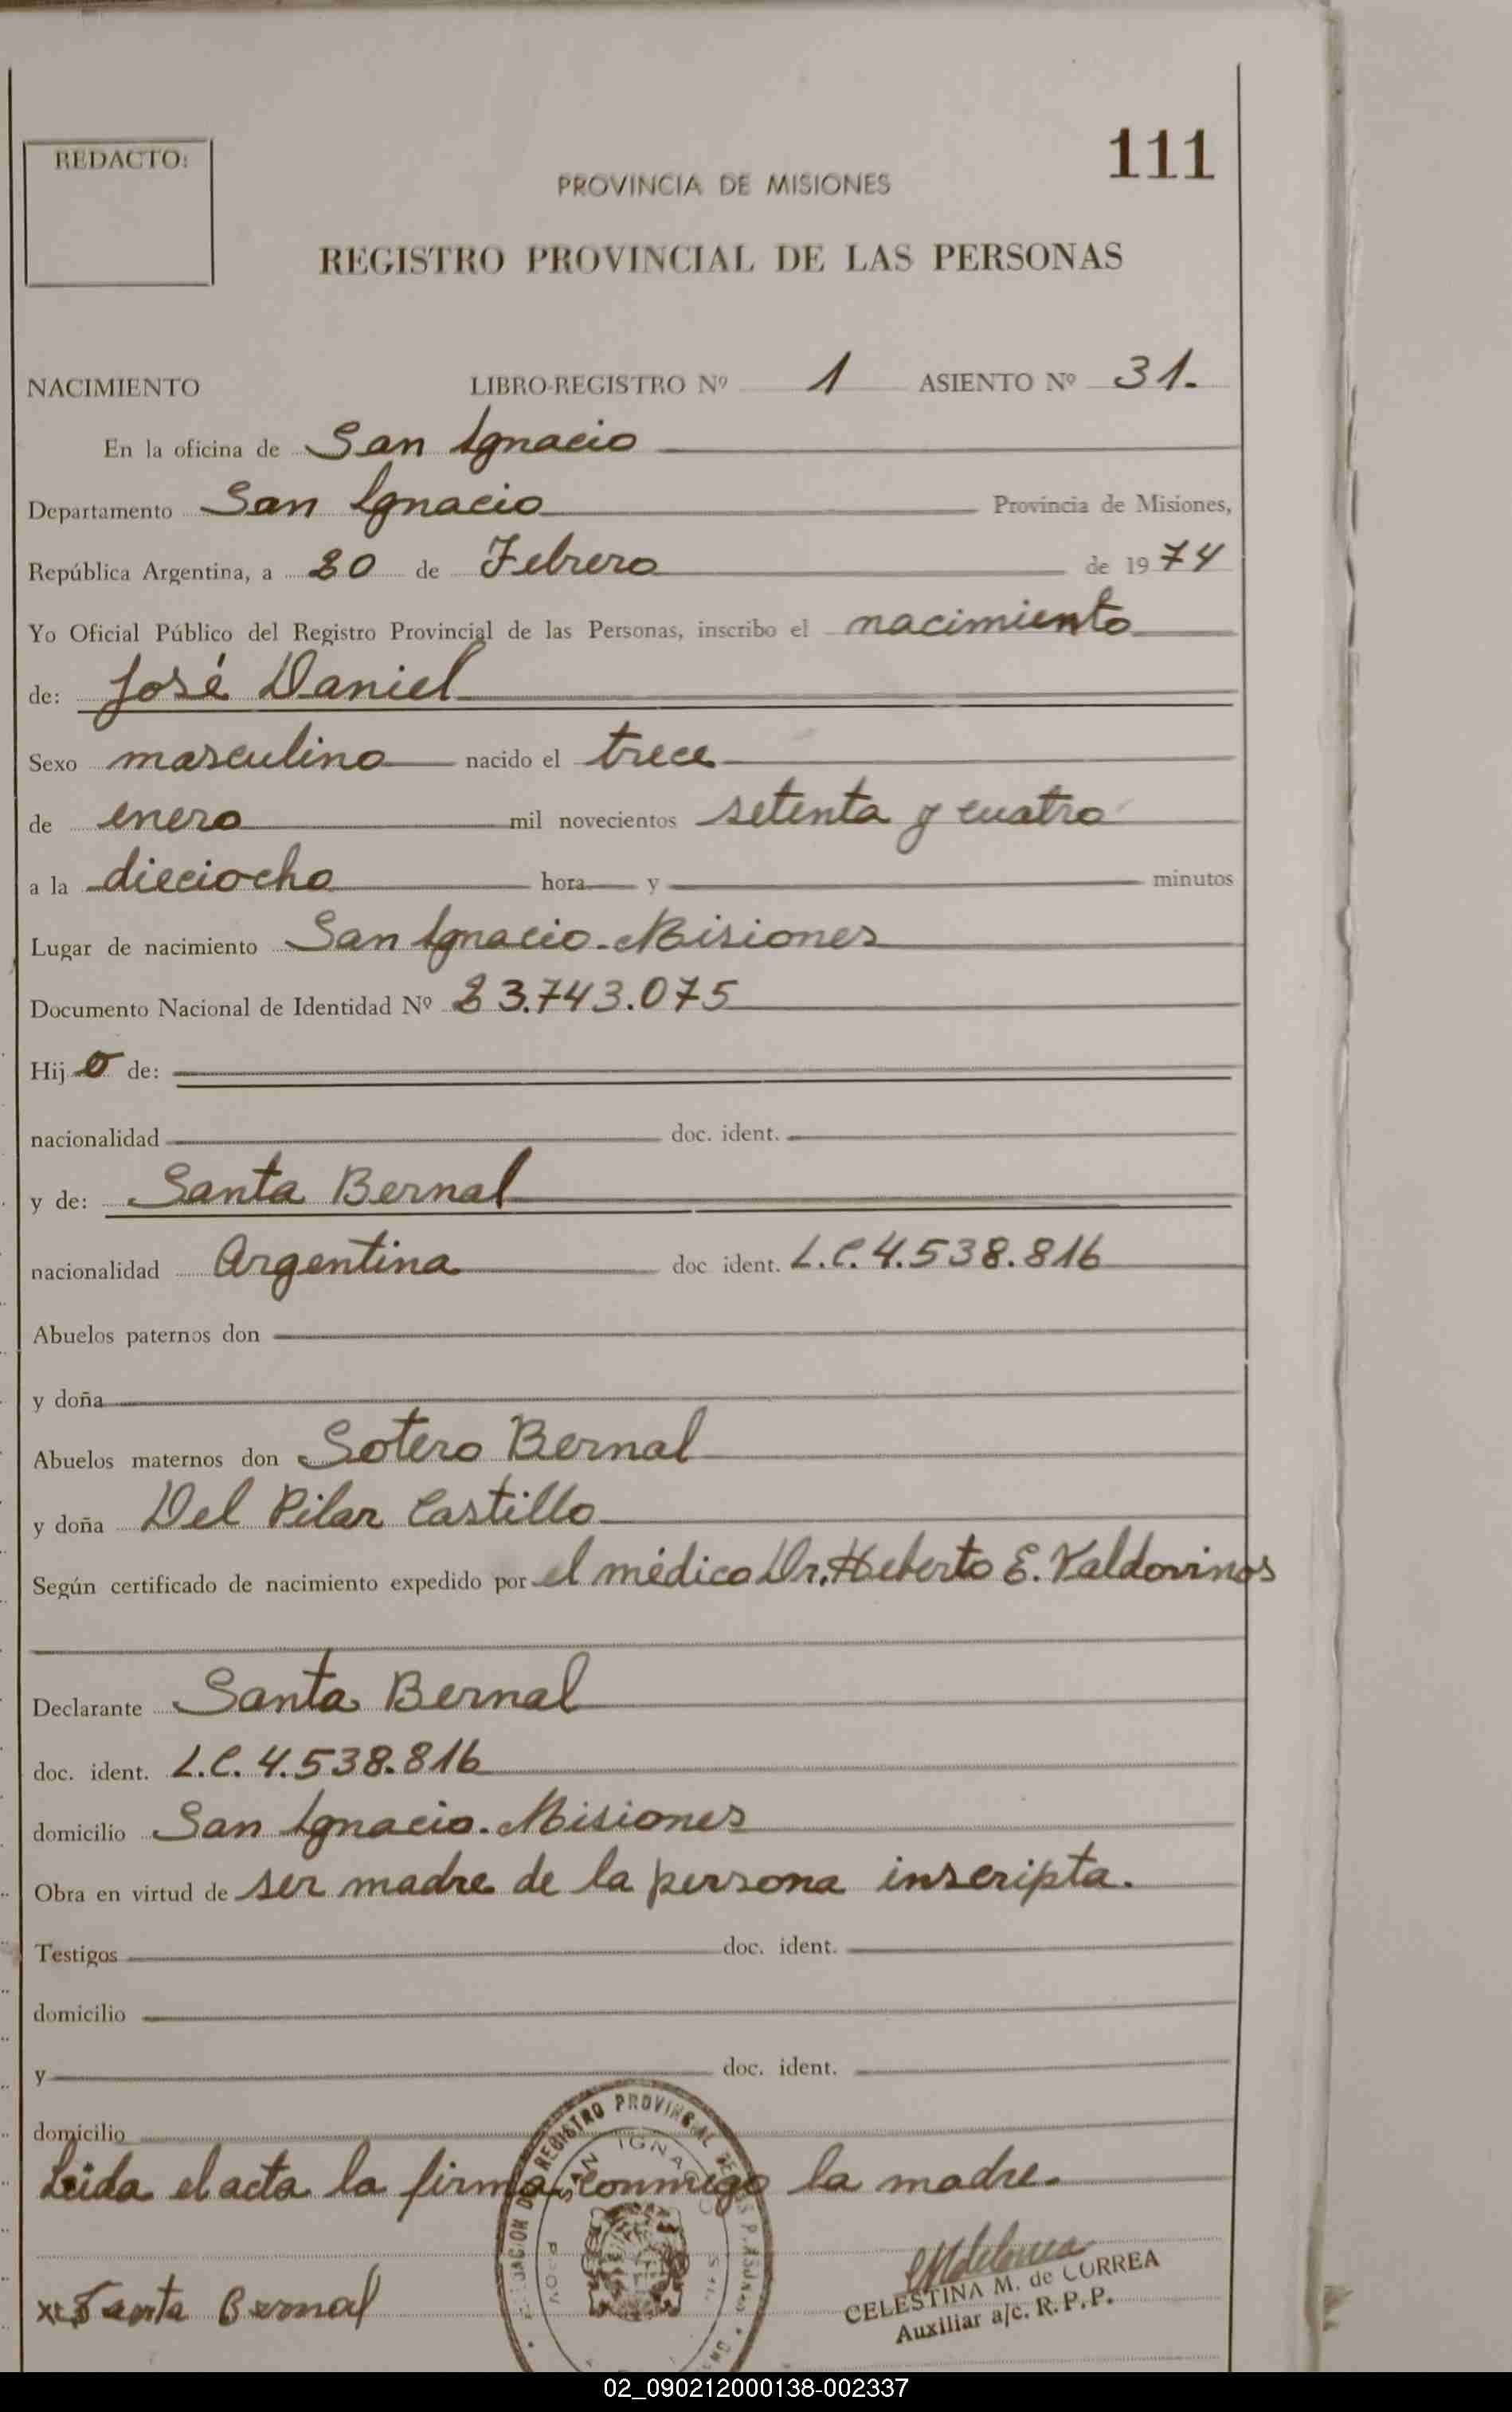 REDACTO:
111
PROVINCIA DE MISIONES
REGISTRO PROVINCIAL DE LAS PERSONAS
NACIMIENTO LIBRO-REGISTRO Nº 1 ASIENTO Nº 31.
En la oficina de San Ignacio
Departamento San Ignacio Provincia de Misiones,
República Argentina, a 20 de Febrero de 1974
Yo Oficial Público del Registro Provincial de las Personas, inscribo el nacimiento
de: José Daniel
Sexo masculino nacido el trece
de enero mil novecientos setenta y cuatro
a la dieciocho hora y minutos
Lugar de nacimiento San Ignacio. Misiones
Documento Nacional de Identidad Nº 23.743.075
Hij o de:
nacionalidad doc. ident.
y de: Santa Bernal
nacionalidad Argentina doc ident. L.C. 4.538.816
Abuelos paternos don
y doña
Abuelos maternos don Sotero Bernal
y doña Del Pilar Castillo
Según certificado de nacimiento expedido por el médico Dr. Heberto E. Valdovinos
Declarante Santa Bernal
doc. ident. L.C. 4.538.816
domicilio San Ignacio. Misiones
Obra en virtud de ser madre de la persona inscripta.
Testigos doc. ident.
domicilio
y doc. ident.
domicilio
Leida el acta la firma conmigo la madre.
REGISTRO PROVINCIAL DE LAS PERSONAS
SAN IGNACIO
Santa Bernal
CELESTINA M. de CORREA
Auxiliar a/c. R.P.P.
02_090212000138-002337